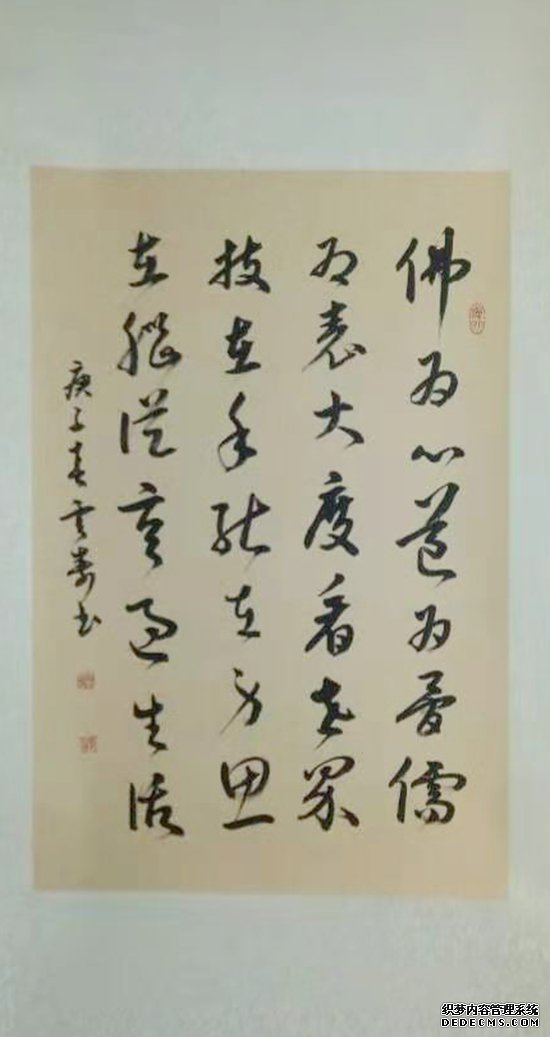 佛為心道為骨儒
為表大度看世界
技在手能在身思
在腦從容過生活
庚子春雲書
织梦内容管理系统
DEDECMS.COM